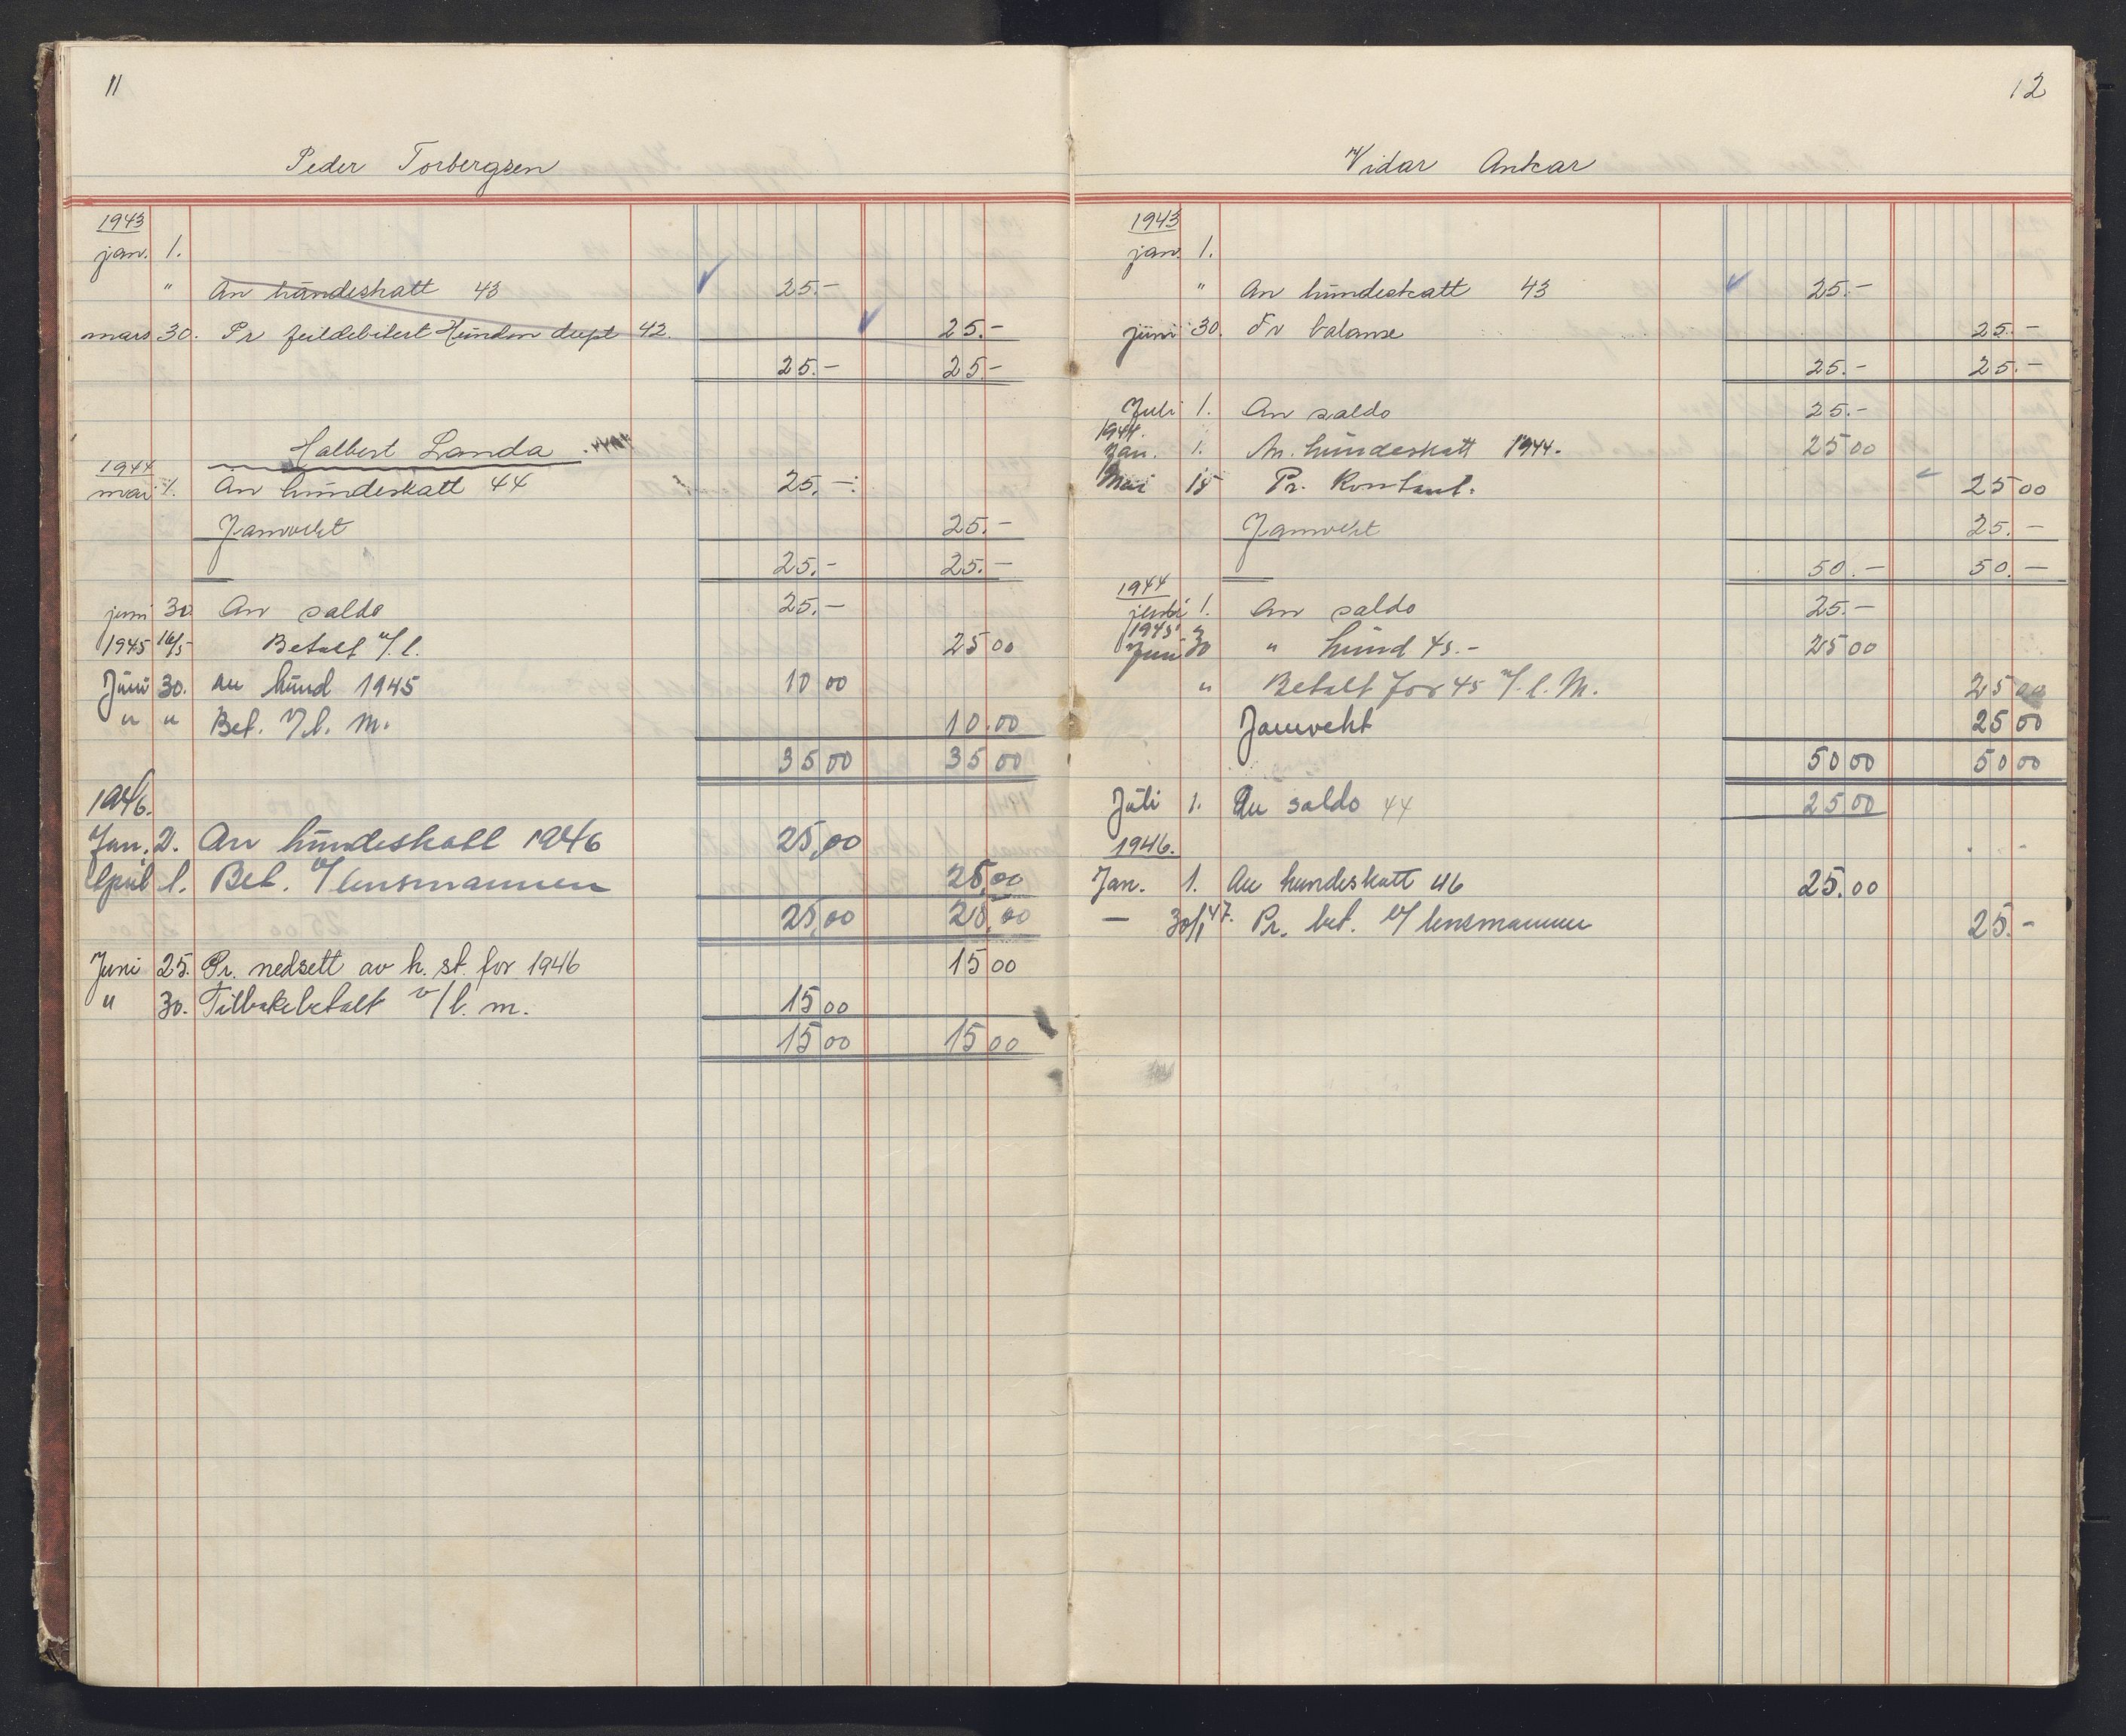 11
Peder Torbergsen
1943
jan. 1.
" An hundeskatt 43 25.-
mars 30. Pr feildebitert Hunden 42. 25.-
25.- 25.-
Halbert Landa
1944
mai 1. An hundeskatt 44 25.-
Jamvekt 25.-
25.- 25.-
juni 30 An saldo 25.-
1945 16/5 Betalt v/l. 25 00
Juni 30. an hund 1945 10 00
" " Bet. v/l. m. 10.00
35 00 35 00
1946.
Jan. 2. An hundeskatt 1946 25,00
April 1. Bet. v/ lensmannen 25,00
25,00 25,00
Juni 25. Pr. nedsett av h. sk. for 1946 15 00
" 30. Tilbakebetalt v/l. m. 15 00
15 00 15 00
12
Vidar Ankar
1943
jan. 1.
" An hundeskatt 43 25.-
juni 30. Pr balanse 25.-
25.- 25.-
Juli 1. An saldo 25.-
1944.
Jan. 1. An. hundeskatt 1944. 25 00
Mai 15 Pr. Kontant. 25 00
Jamvekt 25.-
50.- 50.-
1944
1. An saldo 25.-
1945
Juni 30 " hund 45.- 25 00
" Betalt for 45 v/l. M. 25 00
Jamvekt 25 00
50 00 50 00
Juli 1. An saldo 44 25 00
1946.
Jan. 1. An hundeskatt 46 25.00
— 30/1 47. Pr. bet. v/ lensmannen 25.-